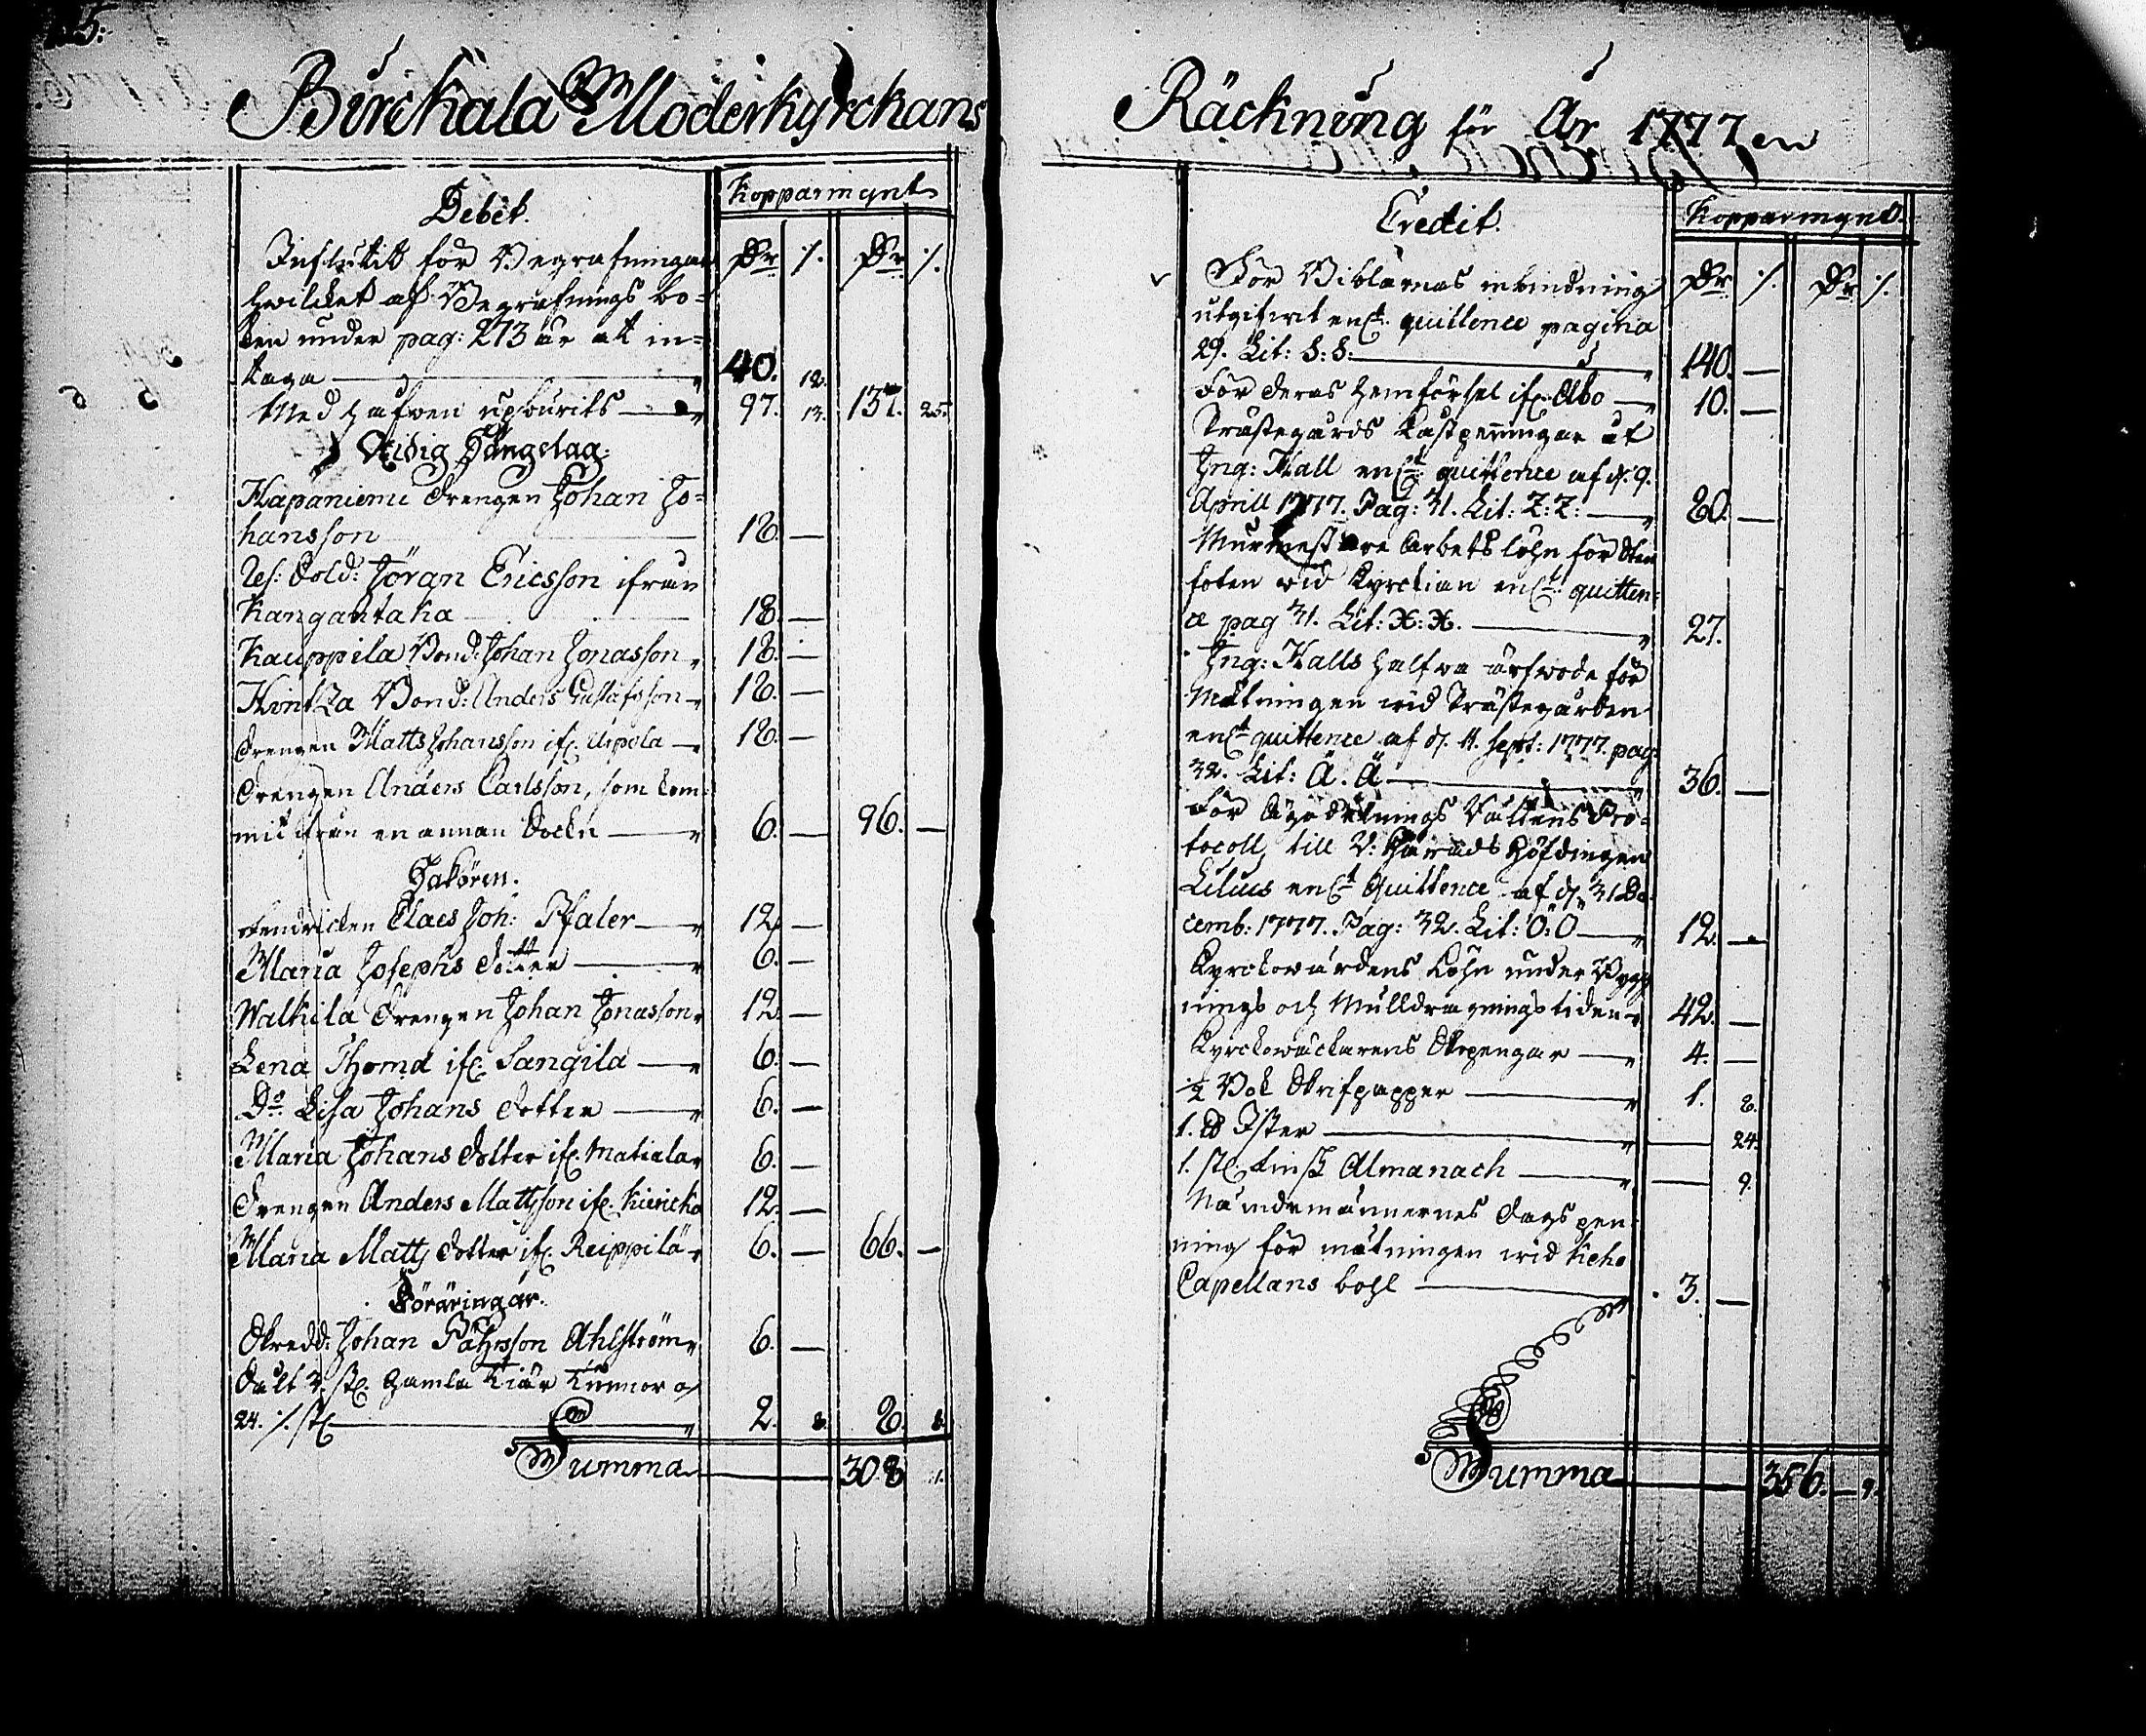 Birckala Moderkyrckans Räckning för År 1777.
Debet.
Kopparmynt
Influtit för Begrafningar
Dr. ./. Dr. ./.
hwilcket af Begrafnings bo-
ken under pag: 273 är at in-
taga 40. 12.
Med Håfwen upburits 97. 13. 137. 25.
Tidig Sängelag.
Hapaniemi drengen Johan Jo-
hansson 18. —
Res: Sold: Jöran Ericsson ifrån
Kangantaka 18. —
Kauppila Bond: Johan Jonasson 18. —
Bond: Anders Gustafsson 18. —
drengen Matts Johansson ifr. 18. —
drengen Anders Carlsson, som kom-
mit ifrån en annan Sockn 6. — 96. —
Fendricken Claes Joh: Pfaler 12. —
Maria Josephs dotter 6. —
Walkila drengen Johan Jonasson 12. —
Lena Thomd ifr. Sangila 6. —
Do. Lisa Johans dotter 6. —
Maria Johans dotter ifr. Matiala 6. —
drengen Anders Mattsson ifr. 12. —
Maria Matts dotter ifr. Reippilä 6. — 66. —
Föräringar.
Skredd: Johan Ahlström 6. —
Sålt 3 st. gamla a
24. ./. st. 2. 8. 8. 8.
Summa 308. 1.
Credit.
Kopparmynt.
För Biblarnas inbindning
Dr. ./. Dr. ./.
utgifwit enl. quittence pagina
29. Lit: S: S: 140. —
För deras hemförsel ifr. Åbo 10. —
Prästegårds Kastpenningar åt
Ing: Hall enl. quittence af d. 9.
April 1777. Pag: 31. Lit: Z: Z: 80. —
Murmestare Arbets löhn för Sten
foten wid Kyrckian enl. quitten-
ce pag 31. Lit: X: X. 27.
Ing: Halls halfwa arfwode för
Mätningen wid Prästegården
enl. quittence af d. 11. Sept: 1777. pag:
32. Lit: Ä. Ä 36. —
För Ägodelnings Rättens Pro-
tocoll till V: Härads Höfdingen
Lilius enl. Quittence af d. 31 De-
cemb: 1777. Pag: 32. Lit: Ö: Ö 12. —
Kyrckowärdens Löhn under Bygg-
nings och Mulldragnings tiden 42. —
Kyrckowäckarens Skopengar 4. —
½ Bok Skrifpapper 1. 8.
1. ℔ Ister 24.
1. st. finsk Almanach 9.
Nämdemännernes dagspen-
ning för mätningen wid Keho
Capellans bohl 3. —
Summa 356. — 9.